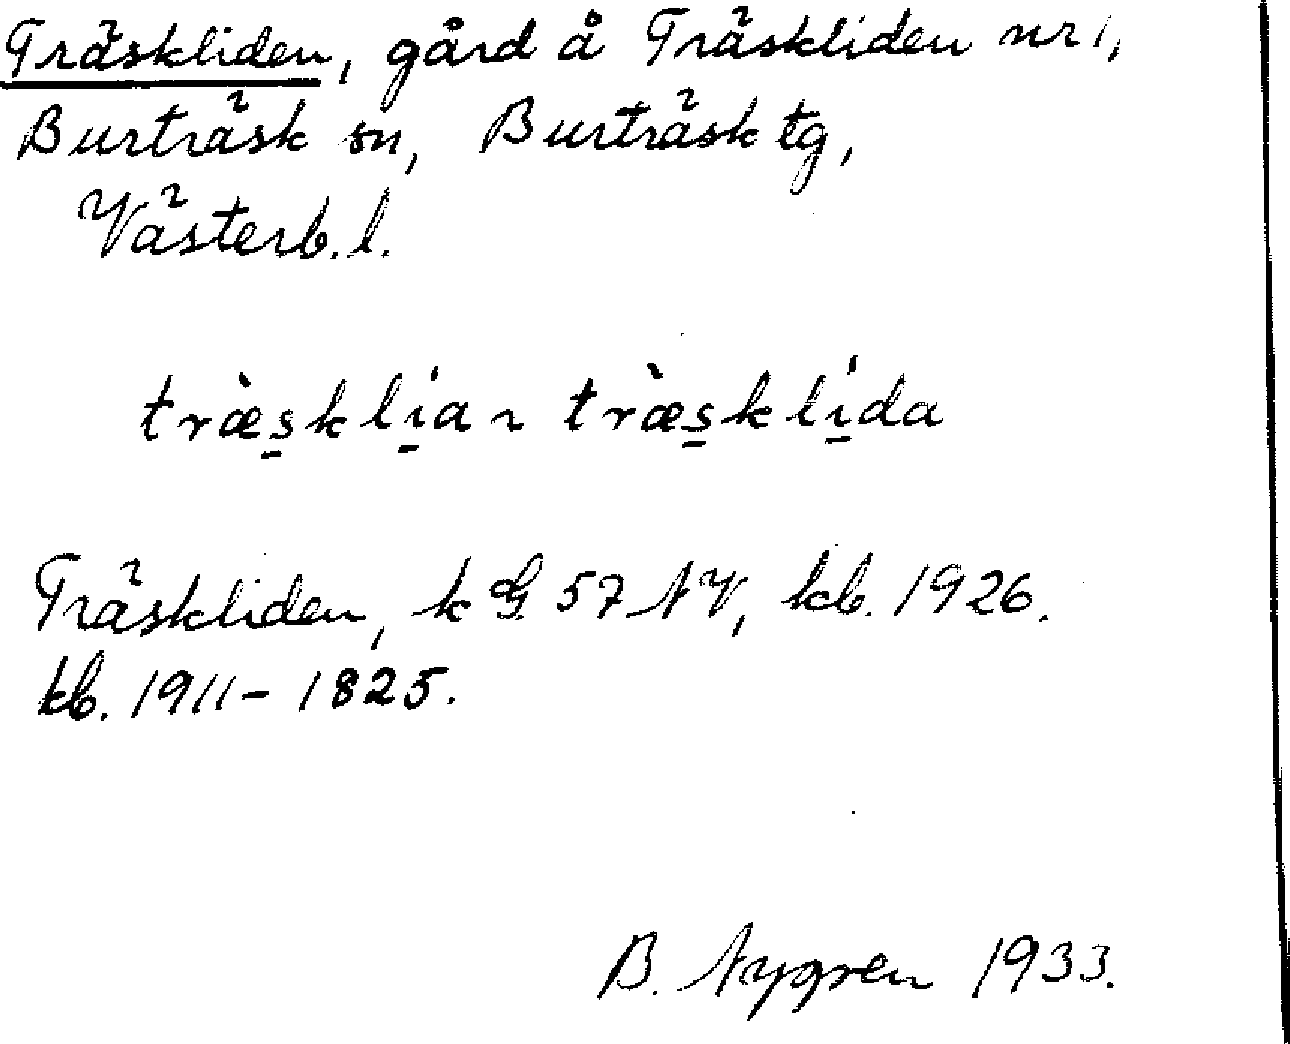 Träskliden, gård å Träskliden nr 1,
Burträsk sn, Burträsk tg,
Västerb. l.
træ̀sklía ~ træ̀sklída
Träskliden, k G 57 NV, kb. 1926.
kb. 1911–1825.
B. Nygren 1933.